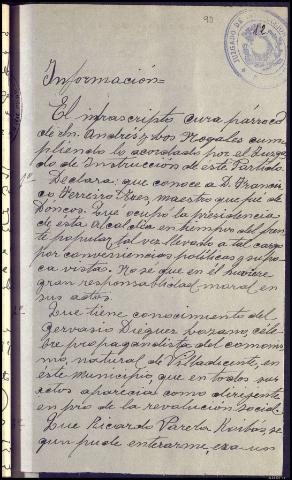 90
12
JUZGADO DE
Información=
El infrascripto, cura párroco
de Sn. Andrés y Dos Nogales cum
pliendo lo acordado por el Juzga
do de Instrucción de este Partido
1º Declara: que conoce a D. Francis
co Ferreiro maestro que fué de
Doncos. Que ocupó la presidencia
de esta alcaldía en tiempos del fren
te popular, tal vez llevado a tal cargo
por conveniencias políticas y su po
ca vista. No se que en él hubiere
gran responsabilidad moral en
sus actos.
Que tiene conocimiento del
Gervasio Dieguez Lozano, céle
bre propagandista del comunis
mo, natural de Villadicente, en
este municipio que en todos sus
actos aparecía como dirigente
en pro de la revolución social.
Que Ricardo Pareta se
gun pude enterarme, era uno